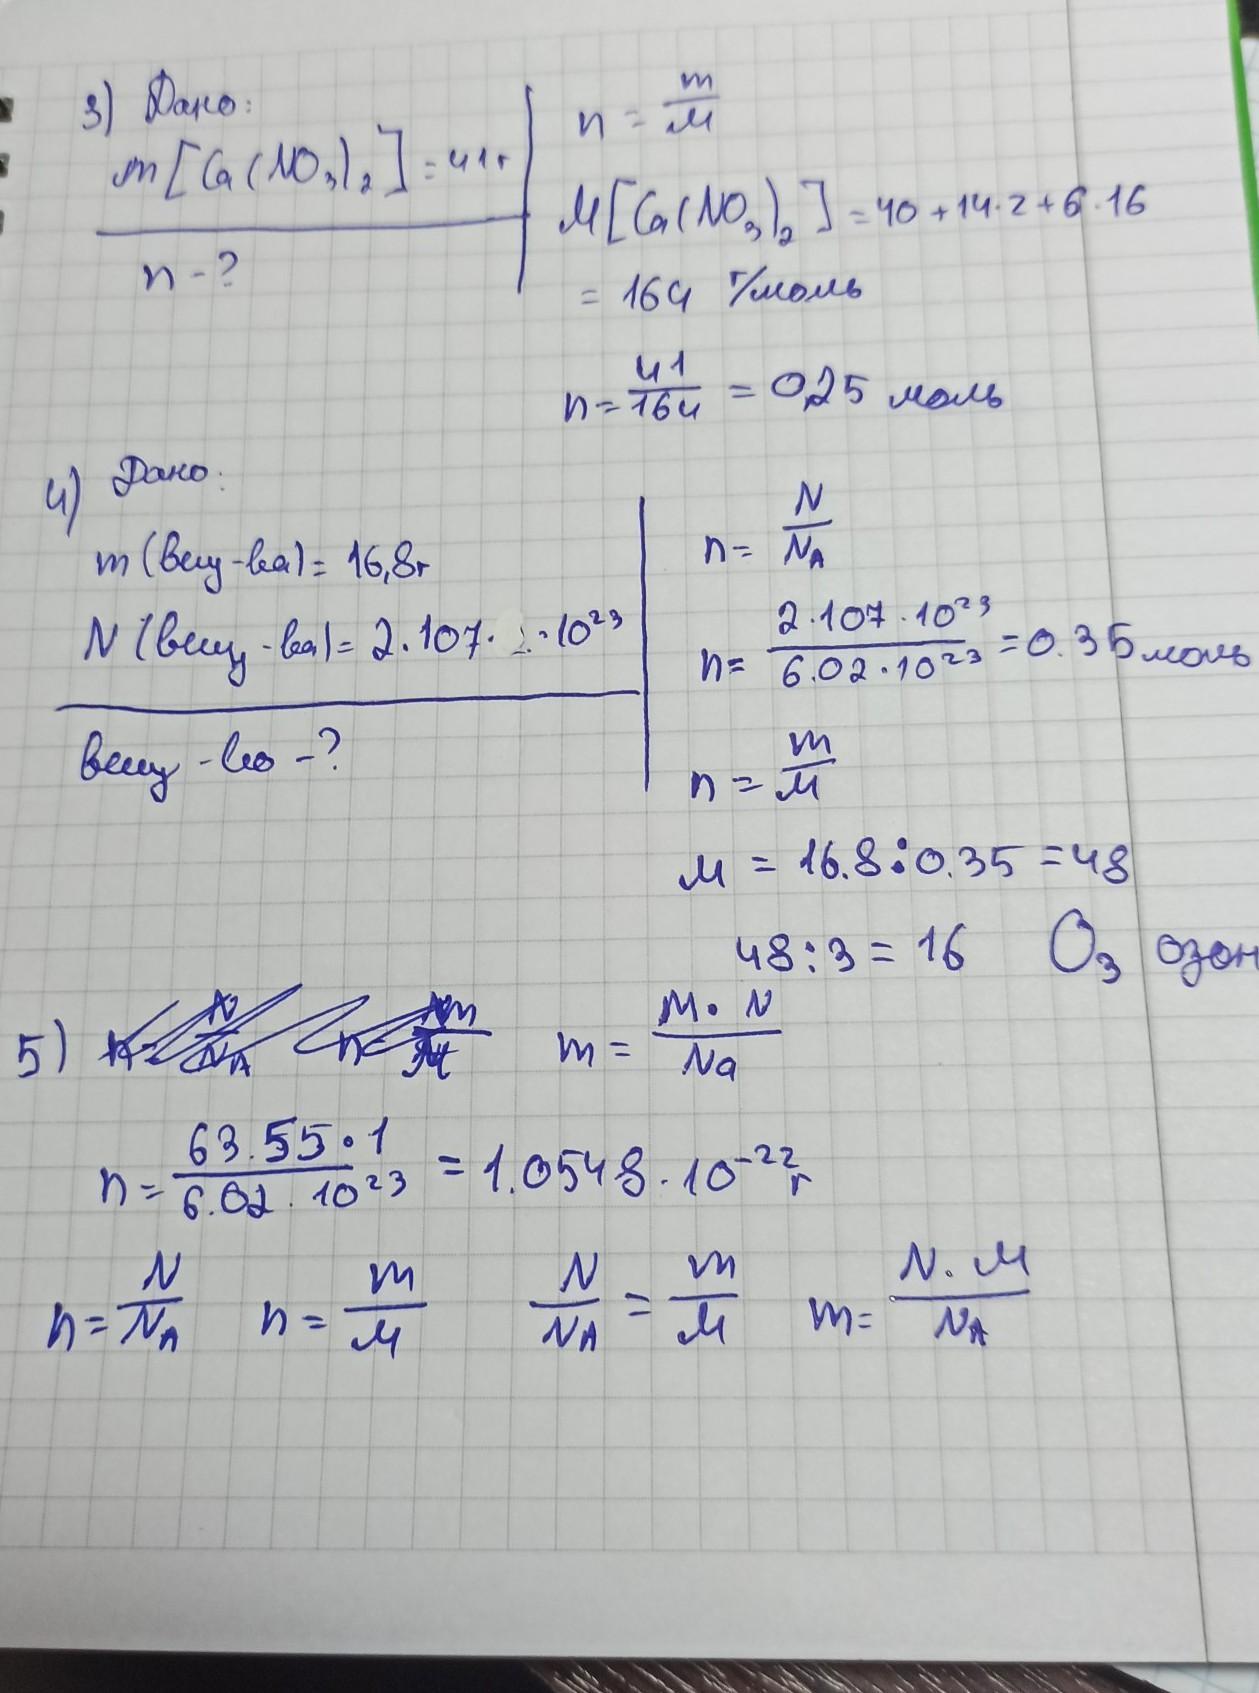 3) Дано:
m[Ca(NO₃)₂] = 41г
n - ?
n = m/M
M[Ca(NO₃)₂] = 40 + 14·2 + 6·16
= 164 г/моль
n = 41/164 = 0,25 моль
4) Дано:
m(вещ-ва) = 16,8г
N(вещ-ва) = 2.107 · 10²³
вещ-во - ?
n = N/N_A
n = 2.107·10²³/6.02·10²³ = 0.35 моль
n = m/M
M = 16.8 : 0.35 = 48
48 : 3 = 16 O₃ озон
5) m = M·N/Na
n = 63.55·1/6.02·10²³ = 1.0548·10⁻²² г
n = N/N_A n = m/M N/N_A = m/M m = N·M/N_A